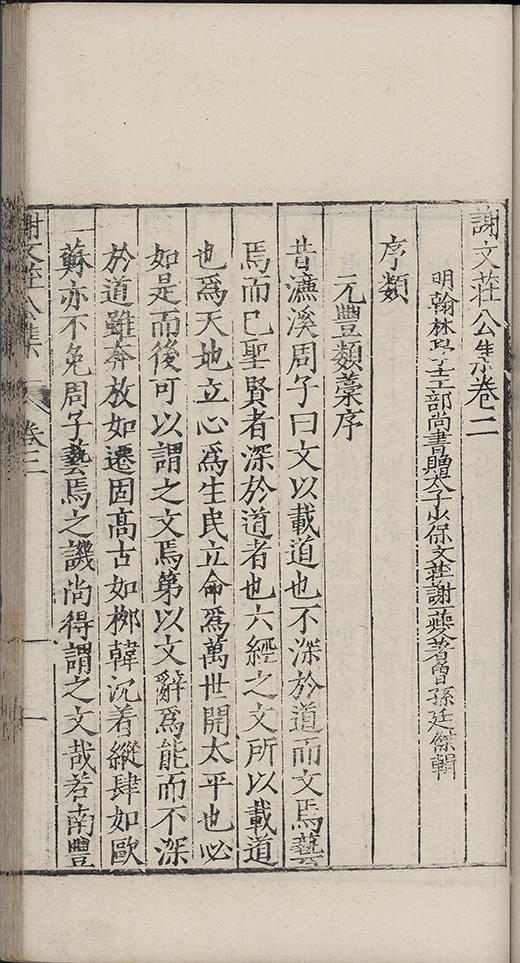 謝文莊公集卷二
明翰林學士工部尚書贈太子少保文莊謝一夔著曾孫廷傑輯
序類
元豐類藁序
昔濂溪周子曰文以載道也不深於道而文焉藝
焉而已聖賢者深於道者也六經之文所以載道
也爲天地立心爲生民立命爲萬世開太平也必
如是而後可以謂之文焉第以文辭爲能而不深
於道雖奔放如遷固高古如柳韓沉着縱肆如歐
蘇亦不免周子藝焉之譏尚得謂之文哉若南豐
謝文莊公集
卷二
一